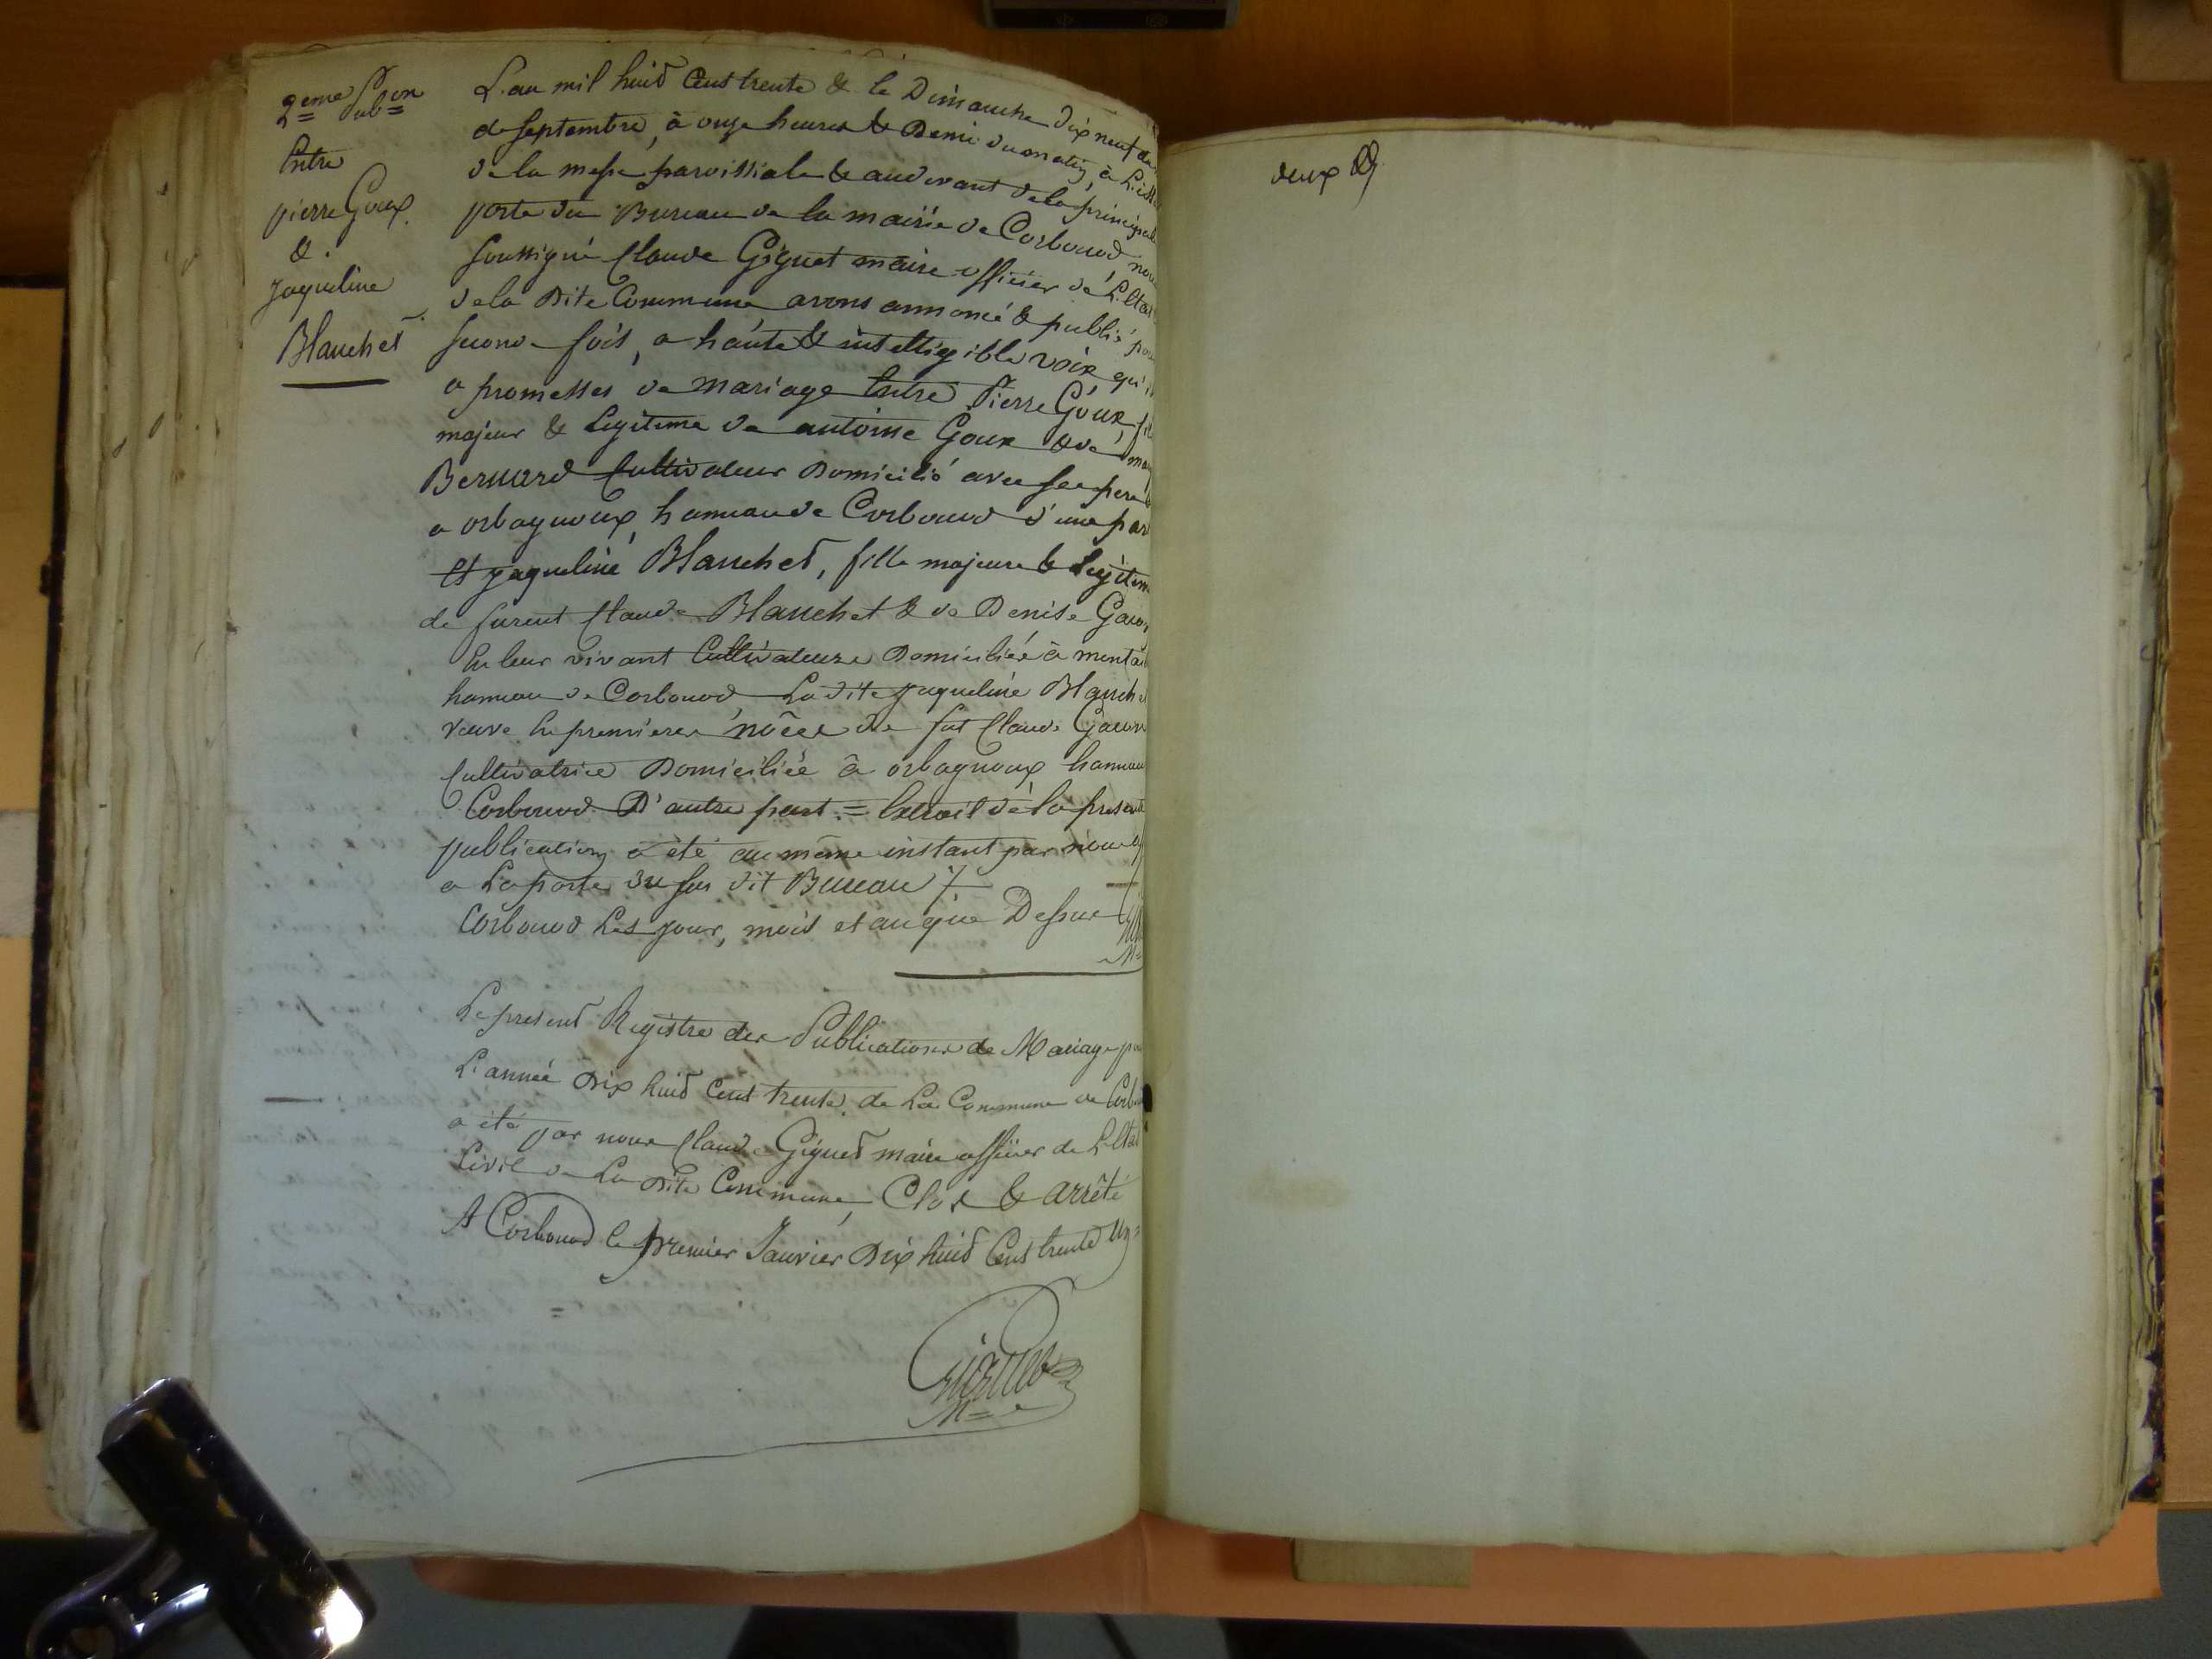 2eme Pubon
Entre
pierre Goux
&.
Jaqueline
Blanchet
L'an mil huit Cent trente & le Dimanche dix neuf du
de septembre, à onze heures & Demi du matin, à L'iss
de la messe paroissiale & au devant de la principale
porte du Bureau de la mairie de Corbonod, nou
soussigné Claude Giguet maire officier de L'Etat
de la Dite Commune avons annoncé & publié pou
seconde fois, a haute & intelligible voix qu'il
a promesses de mariage Entre Pierre Goux, fil
majeur & Legitime de antoine Goux & de
Bernard Cultivateur Domicilié avec ses pere
a orbagnoux, hameau de Corbonod d'une par
Et jaqueline Blanchet, fille majeure & Legitim
de furent Claude Blanchet & de Denise
En leur vivant Cultivateurs Domiciliés à
hameau de Corbonod, La dite jaqueline Blanch
veuve En premieres nôces de fut Claude
Cultivatrice Domiciliée à orbagnoux hameau
Corbonod D'autre part. = Extrait de la presente
publication a été au même instant par nous
a La porte du sus dit Bureau
Corbonod Les jour, mois et an que Dessus
M=
Le present Registre des Publications de Mariage pou
L'année Dix huit Cent trente de La Commune de Corb
a été par nous Claude Giguet maire officier de L'Etat
Civil de La Dite Commune, Clos & arrêté
A Corbonod le premier Janvier Dix huit Cent trente un =
Giguet
M=e
deux